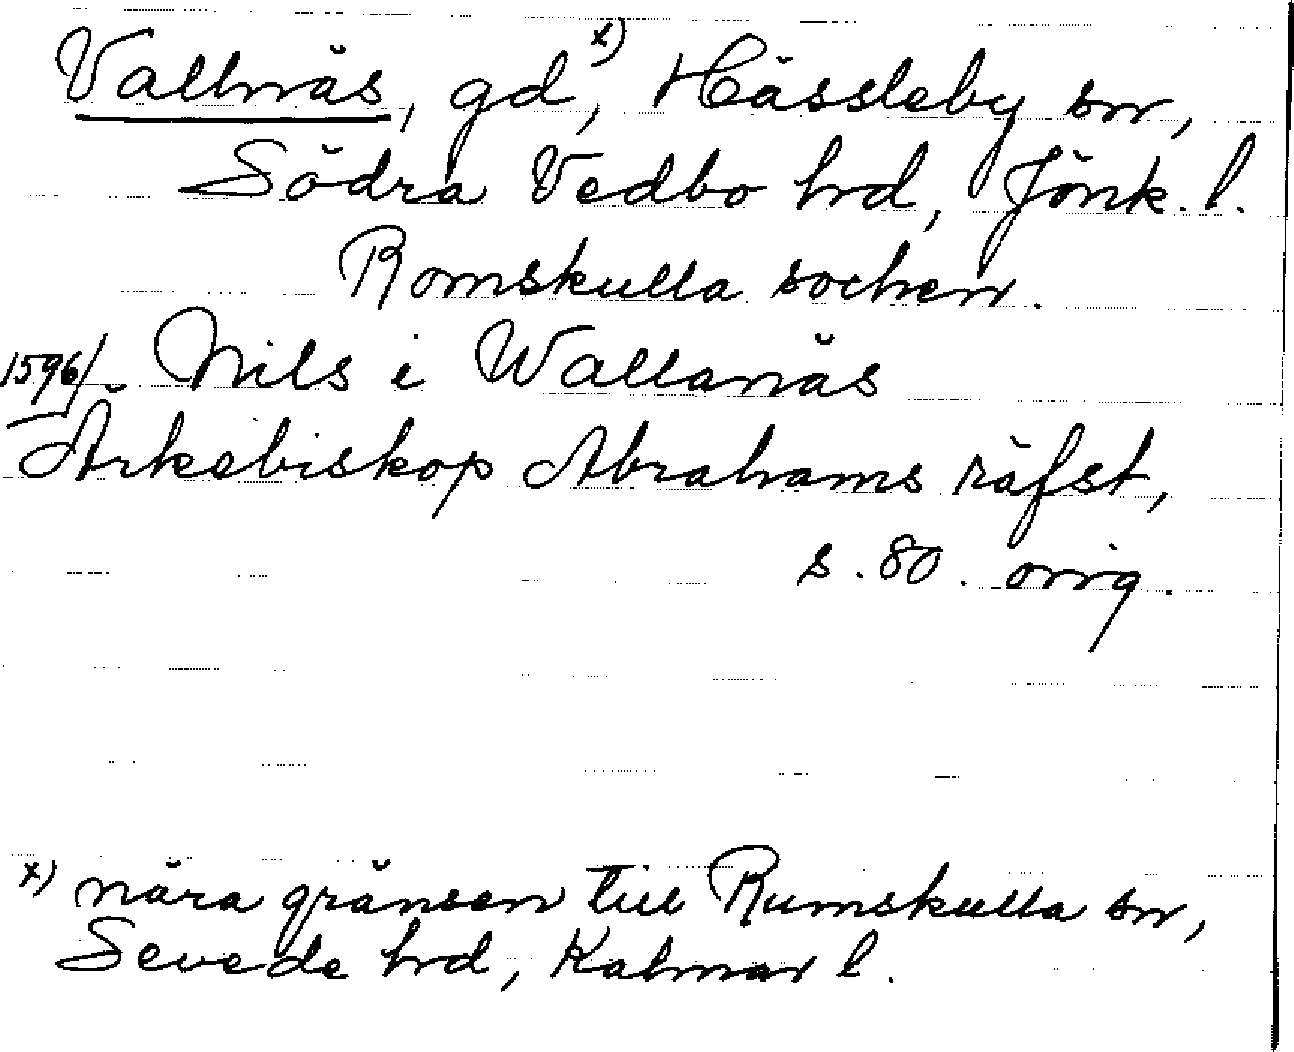 Vallnäs, gd,ˣ⁾ Hässleby sn,
Södra Vedbo hrd, Jönk. l.
Romskulla sochen.
1596/ Nils i Wallanäs
Ärkebiskop Abrahams räfst,
s. 80. orig.
x) nära gränsen till Rumskulla sn,
Sevede hrd, Kalmar l.